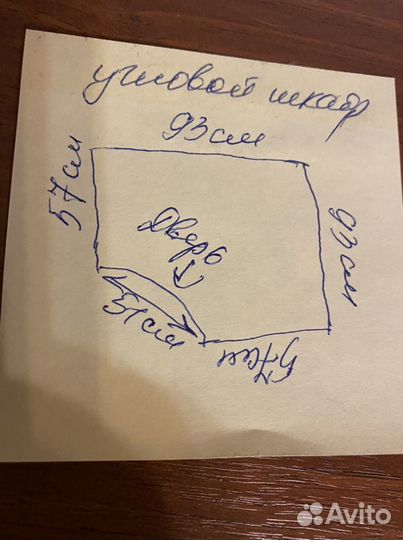 угловой шкаф
93 см
57 см
93 см
Дверь
51 см
57 см
Avito